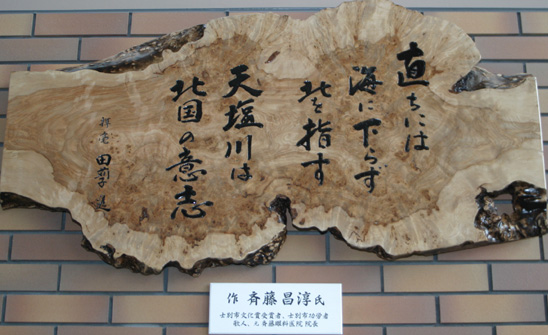 直ちには
海に下らず
北を指す
天塩川は
北国の意志
作 斉藤昌淳氏
士別市文化賞受賞者、士別市功労者
歌人、元斉藤眼科医院 院長